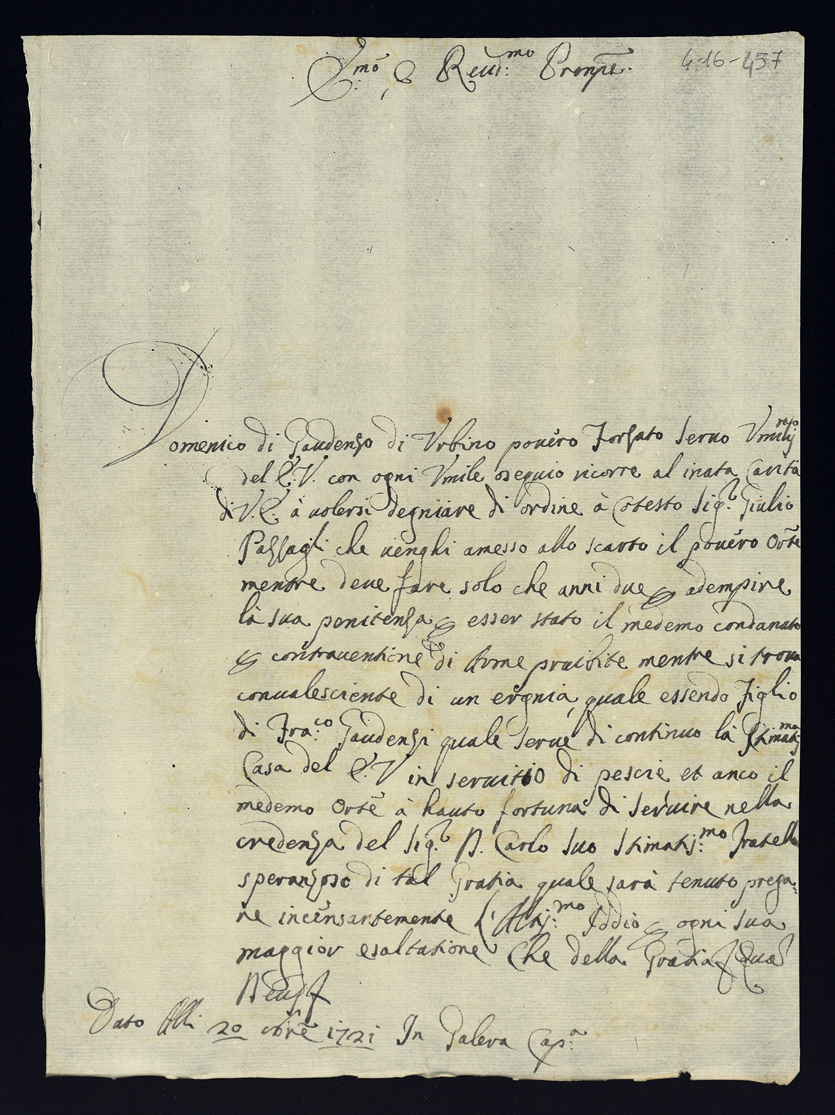 Em̃o, e Reu:mo Prenpẽ.
4-16-457
Domenico di Gaudenzo di Vrbino pouero Forzato seruo Vmilj
del E.V. con ogni Vmile osequio ricorre al inata Carità
di V.E. à uolersi degniare di ordine à Cotesto Sig.r Giulio
Pazzagli che uenghi amesso allo scarto il pouero Orẽ
mentre deue fare solo che anni due adempire
là sua penitenza esser stato il medemo condanato
contrauentione di Arme proibite mentre si troua
conualesciente di un ergnia, quale essendo Figlio
di Fra.co Gaudenzi quale serue di continuo là Stimatj:ma
Casa del E.V in seruitio di pescie et anco il
medemo Orẽ à hauto fortuna di seruire nella
credenza del Sig.r D. Carlo suo Stimatjs:mo Fratello
speranzoso di tal Gratia quale sarà tenuto prega=
re incensantemente l'Altj:mo Iddio ogni sua
maggior esaltatione Che della Gratia
Dato Alli 20 1721 In Galera Cap.a